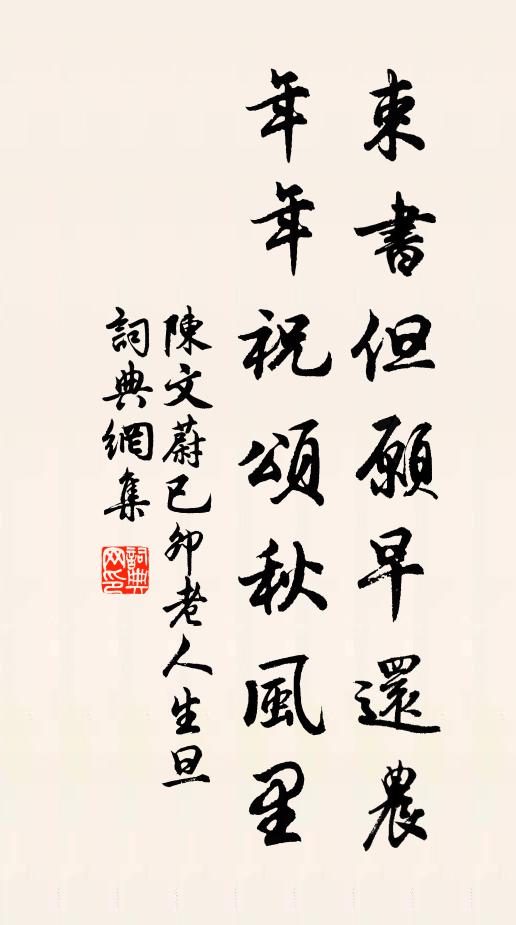 東書但願早還農
年年祝頌秋風里
陳文蔚已卯老人生旦
詞典網集
詞典網印